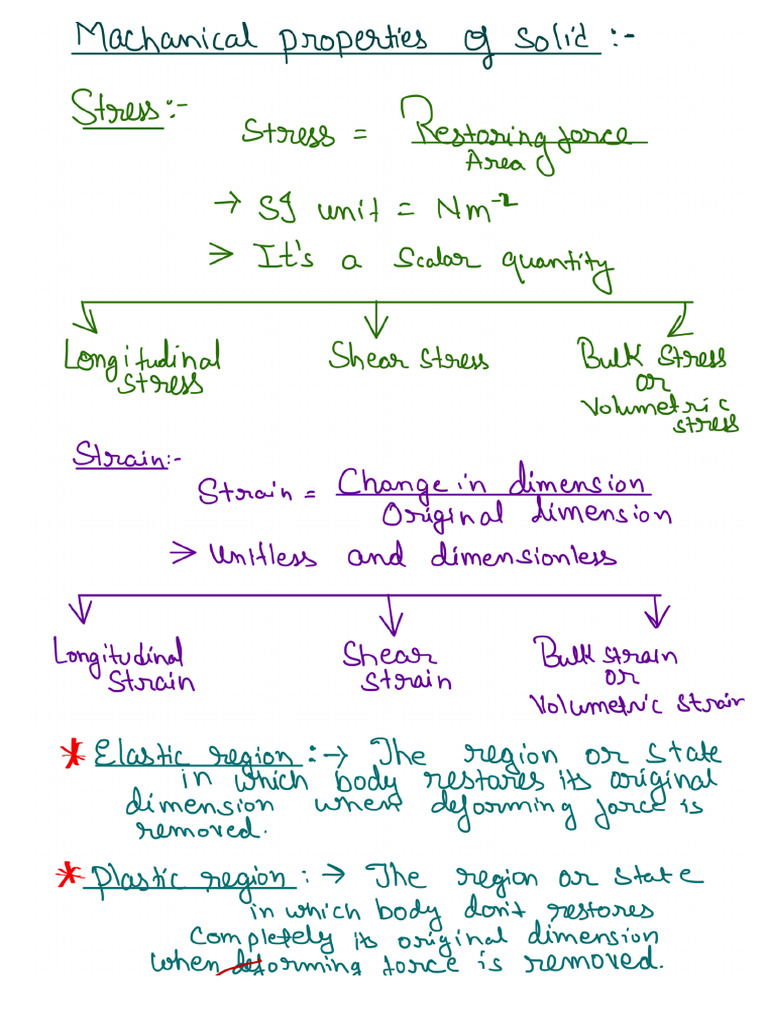 Machanical properties of solid :-
Stress:-
Stress = Restoring force
Area
→ SI unit = Nm⁻²
⇒ It's a Scalar quantity
Longitudinal stress
Shear stress
Bulk stress or Volumetric stress
Strain:-
Strain = Change in dimension
Original dimension
⇒ Unitless and dimensionless
Longitudinal Strain
Shear strain
Bulk strain or Volumetric strain
* Elastic region :→ The region or state
in which body restares its original
dimension when deforming force is
removed.
* Plastic region : → The region or state
in which body don't restores
completely its original dimension
when deforming force is removed.